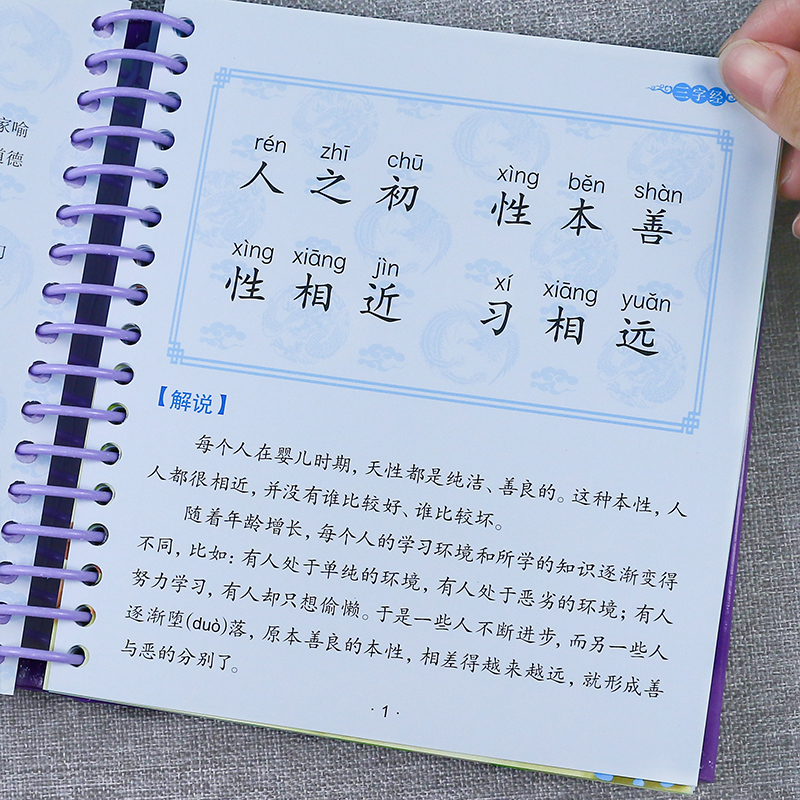 家喻
道德
三字经
rén zhī chū xìng běn shàn
人之初 性本善
xìng xiāng jìn xí xiāng yuǎn
性相近 习相远
【解说】
每个人在婴儿时期，天性都是纯洁、善良的。这种本性，人
人都很相近，并没有谁比较好、谁比较坏。
随着年龄增长，每个人的学习环境和所学的知识逐渐变得
不同，比如：有人处于单纯的环境，有人处于恶劣的环境；有人
努力学习，有人却只想偷懒。于是一些人不断进步，而另一些人
逐渐堕(duò)落，原本善良的本性，相差得越来越远，就形成善
与恶的分别了。
·1·